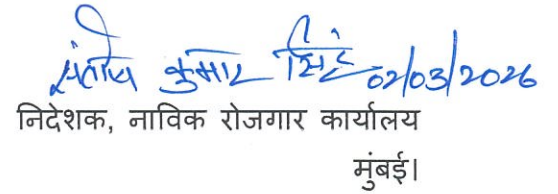 संतोष कुमार सिंह 02/03/2026
निदेशक, नाविक रोजगार कार्यालय
मुंबई।